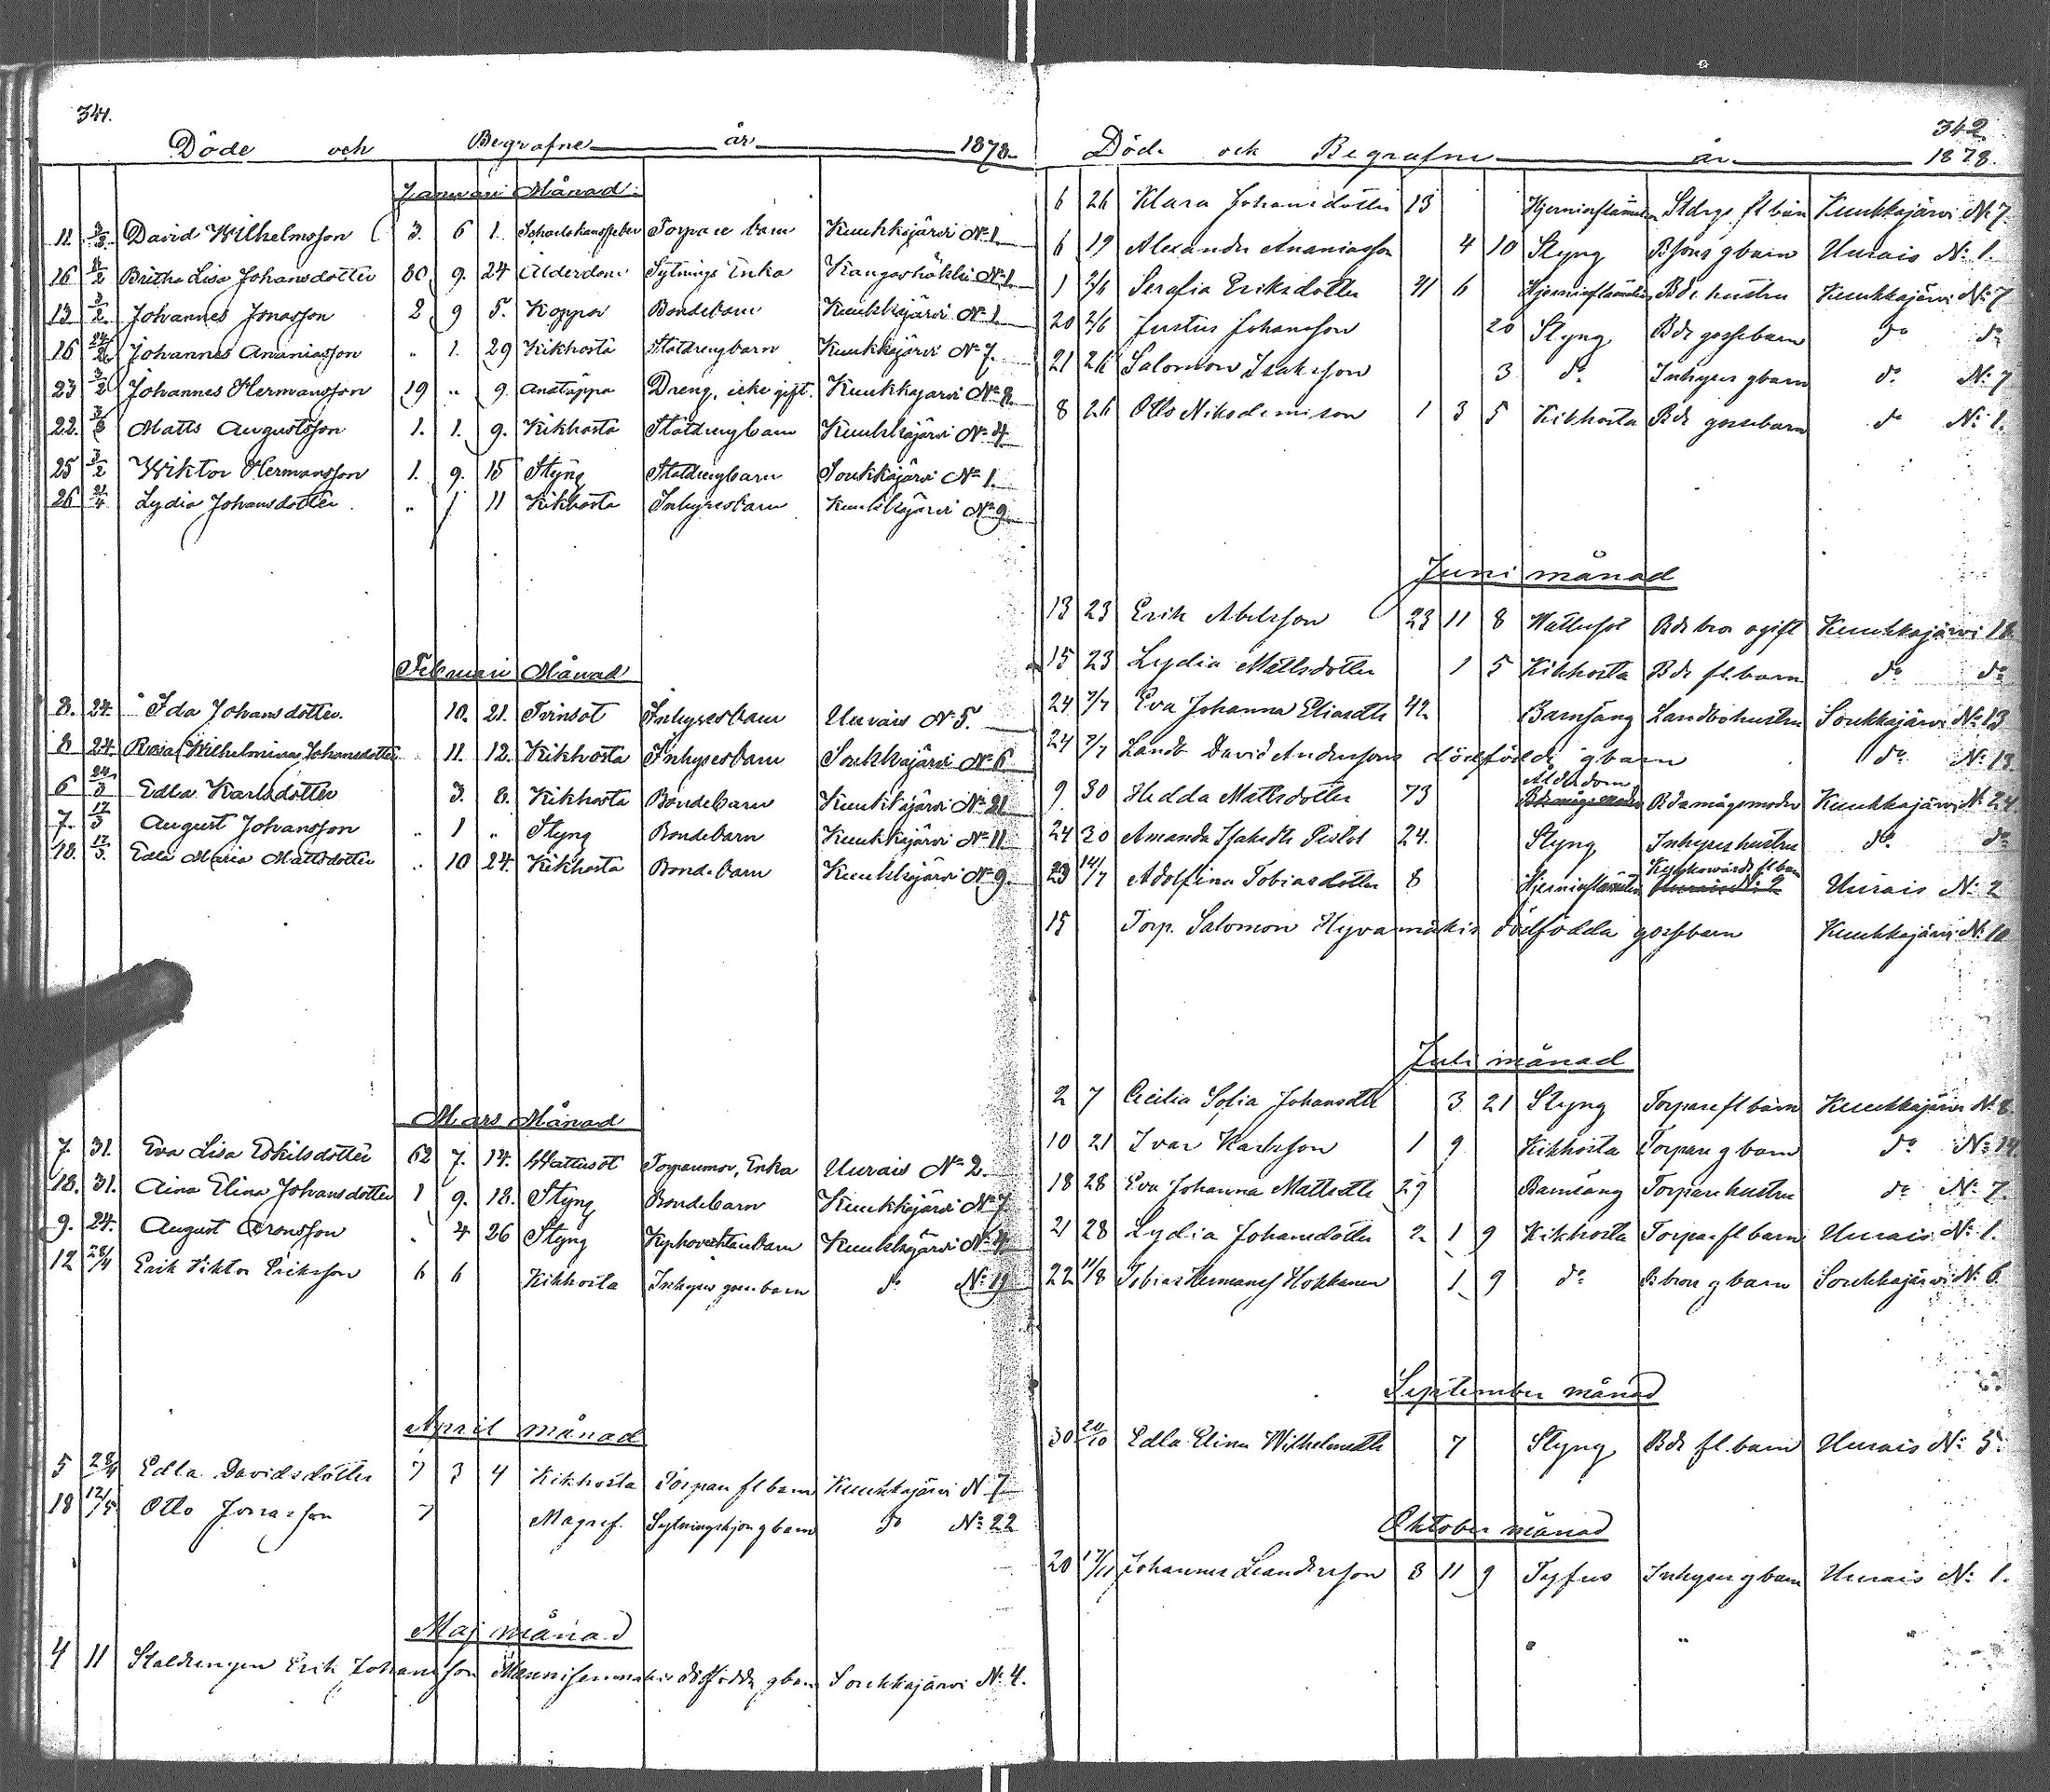 341.
Döde och Begrafne år 1878.
Januari Månad.
11. 3/2. David Wilhelmsson 3. 6 1. Torpare barn Kuukkajärvi No 1.
16 2 Britha Lisa Johansdotter 80 9. 24 Ålderdom Sytnings Enka Kangashäkki No 1.
13 3/2. Johannes Jonasson 2 9 5. Koppor Bondebarn Kuukkajärvi No 1.
16 Johannes Ananiasson " 1. 29 Kikhosta Statdrengbarn Kuukkajärvi No 7.
23 3/2 Johannes Hermansson 19 " 9. Andtäppa Dreng, icke gift. Kuukkajarvi No
22. Matts Augustsson 1. 1. 9. Kikhosta Statdrengbarn Kuukkajärvi No 4.
25 3/2 Wiktor Hermansson 1. 9. 15 Styng Statdrengbarn Soukkajärvi No 1.
26 Lydia Johansdotter " 1 11 Kikhosta Inhysesbarn Kuukkajärvi No 9.
Februari Månad
8. 24. Ida Johansdotter. 10. 21. Tvinsot Inhysesbarn Uurais No 5.
8 24. Rosa Wilhelmina Johansdotter 11. 12. Kikhosta Inhysesbarn Soukkajärvi No 6
6 24/3 Edla Karlsdotter 3. 8. Kikhosta Bondebarn Kuukkajärvi No 21
7. 17/3 August Johansson " 1 " Styng Bondebarn Kuukkajärvi No 11
18. 17/3. Edla Maria Mattsdotter " 10 24. Kikhosta Bondebarn Kuukkajärvi No 9.
Mars Månad
7. 31. Eva Lisa Eskilsdotter 62 7. 14. Wattusot Torparmor, Enka Uurais No 2.
18. 31. Aina Elina Johansdotter 1 9. 18. Styng Bondebarn Kuukkajärvi No 7
9. 24. August Aronsson . 4 26 Styng Kuukkajärvi No 4.
12 28/4 Erik Viktor Eriksson 6 6 Kikhosta Inhyses gossebarn do No 19
April månad
5 28/4 Edla Davidsdotter 7 3 4 Kikhosta Torpare fl barn Kuukkajärvi N 7
18 12/5 Otto Jonasson 7 Magref. Sytningshjon g barn do No 22
Maj månad
4 11 Staldrengen Erik Johansson dödfödda g barn Soukkajärvi No 4.
342
Döde och Begrafne år 1878.
6 26 Klara Johansdotter 13 Hjerninflammation Stdrgs fl barn Kuukkajärvi No 7.
6 19 Alexander Ananiasson 4 10 Styng g barn Uurais No 1.
1 2/6 Serafia Eriksdotter 41 6 Hjerninflammation Bde hustru Kuukkajärvi No 7
20 2/6 Justus Johansson 20 Styng Bde gossebarn do do
21 26 Salomon Isaksson 3 do Inhyses g barn do No 7
8 26 Otto Nikodemison 1 3 5 Kikhosta Bde gossebarn do No 1.
Juni månad
13 23 Erik Abelsson 23 11 8 Wattusot Bde bror ogift Kuukkajärvi 18
15 23 Lydia Mattsdotter 1 5 Kikhosta Bde fl. barn do do
24 7/7 Eva Johanna Eliasdtr 42 Barnsäng Landbohustru Soukkajärvi No 13
24 7/7 Landb David Anderssons dödfödda g barn do No 13
9 30 Hedda Mattsdotter 73 Ålderdom Bdemågsmoder Kuukkajärvi No 24
24 30 Amanda Isaksdtr Pistol 24. Styng Inhyses hustru do do
23 14/7 Adolfina Tobiasdotter 8 Hjerninflammation fl barn Uurais No 2
15 Torp. Salomon Hyvämäkis dödfödda gossebarn Kuukkajärvi No 10
Juli månad
2 7 Cecilia Sofia Johansdtr 3 21 Styng Torpare fl barn Kuukkajärvi No 8.
10 21 Ivar Karlsson 1 9 Kikhosta Torpare g barn do No 14.
18 28 Eva Johanna Mattsdtr 29 Barnsäng Torpare hustru do No 7.
21 28 Lydia Johansdotter 2 1 9 Kikhosta Torpare fl barn Uurais No 1.
22 11/8 Tobias Hermanss Hokkanen 1 9 do B bror g barn Soukkajärvi No 6.
September månad
30 20/10 Edla Elina Wilhelmsdtr 7 Styng Bde fl. barn Uurais No 5.
Oktober månad
20 17/11 Johannes Leandersson 8 11 9 Tyfus Inhyses g barn Uurais No 1.